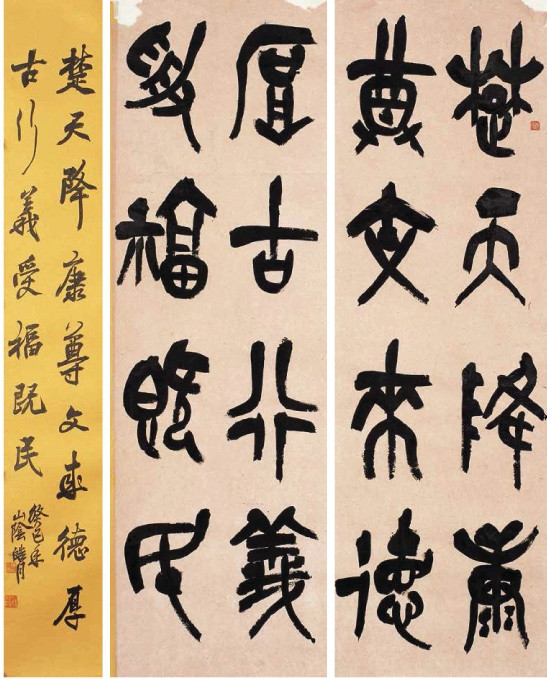 楚天降康
尊文來德
厚古行義
受福既民
楚天降康尊文来德厚
古行義受福既民
癸巳年
山陰